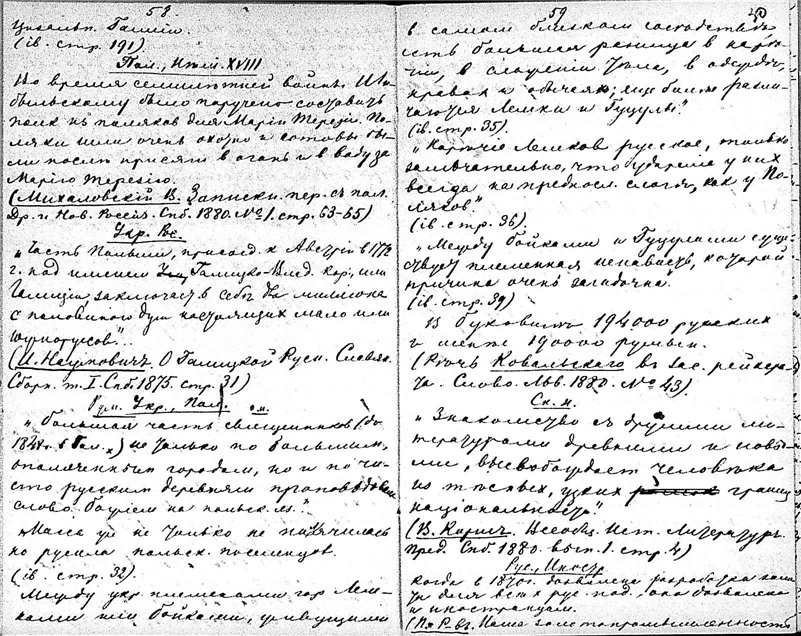 58
(ib. стр. 191)
Пол., Нѣм. XVIII
Во время семилѣтней войны
было поручено составить
полк из поляков для Маріи Терезіи. По-
ляки шли очень охотно и готовы бы-
ли послѣ присяги в огонь и в воду за
Марію Терезію.
(Михаловскій В. Записки. пер. съ пол.
Др. и Нов. Россія. Спб. 1880. № 1. стр. 63-65)
Укр. Вс.
„Часть Польши, присоед. к Австріи в 1772
г. под именем Галицко-Влад. кор., или
Галиціи, заключает в себѣ два милліона
с половиною душ настоящих мало или
(И. О Галицкой Руси. Славян.
Сборн. т. I. Спб. 1875. стр. 31)
Укр., Пол.
„большая часть священников (до
не только по большим,
ополяченным городам, но и по чи-
сто русским деревням проповѣдовали
слово божіе на польск. яз."
„Масса уже не только не полячилась
но русила польск. поселенцов.
(ib. стр. 32).
Между укр. племенами гор Лем-
ками или бойками, живущими
59
в самом близком сосѣдствѣ
есть большая разница в нарѣ-
чіи, в сложеніи тѣла, в одеждѣ,
нравах и обычаях; еще болѣе разли-
чаются Лемки и Гуцулы."
(ib. стр. 35).
„Нарѣчіе Лемков русское, только
замѣчательно, что удареніе у них
всегда на предпосл. слогѣ, как у По-
ляков."
(ib. стр. 36).
„Между бойками и Гуцулами суще-
ствует племенная ненависть, которой
причина очень загадочна."
(ib. стр. 39)
В Буковинѣ 194000 русских
и менѣе 190000 румын.
(Рѣчь Ковальскаго въ зас. рейхсра-
та. Слово. Льв. 1880. № 43).
„Знакомство съ другими ли-
тературами древними и новы-
ми, высвобождает человѣка
из тѣсных, узких границ
національности"
(В. Корш. Всеобщ. Ист. Литературы.
Пред. Спб. 1880. вып. 1. стр. 4)
Рус., Иностр
Когда в 1870г. дозволена разработка
для всѣх рус. под. она дозволена
и иностранцам.
Наша золотопромышленность